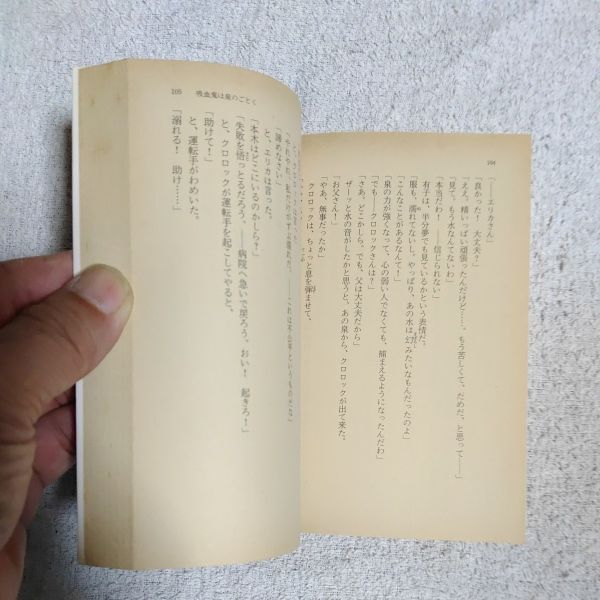 104
「――エリカさん」
「良かった！　大丈夫？」
「ええ。精いっぱい頑張ったんだけど……。もう苦しくて、だめだ、と思って――」
「見て。もう水なんてないわ」
「本当だわ！　――信じられない」
有子は、半分夢でも見ているかという表情だ。
「服も、濡れてないし。やっぱり、あの水は幻みたいなもんだったのよ」
「こんなことがあるなんて！」
「泉の力が強くなって、心の弱い人でなくても、捕まえるようになったんだわ」
「でも――クロロックさんは？」
「さあ、どこかしら。でも、父は大丈夫だから」
ザーッと水の音がしたかと思うと、あの泉から、クロロックが出て来た。
「お父さん！」
「やあ、無事だったか」
クロロックは、ちょっと息を弾ませて、
105　吸血鬼は泉のごとく
「やれやれ、私だけがずぶ濡れだ。――これは不公平というものだな」
「諦めなさい」
と、エリカは言った。
「本木はどこにいるのかしら？」
「失敗を悟っとるだろう。――病院へ急いで戻ろう。おい！　起きろ！」
と、クロロックが運転手を起こしてやると、
「助けて！」
と、運転手がわめいた。
「溺れる！　助け……」